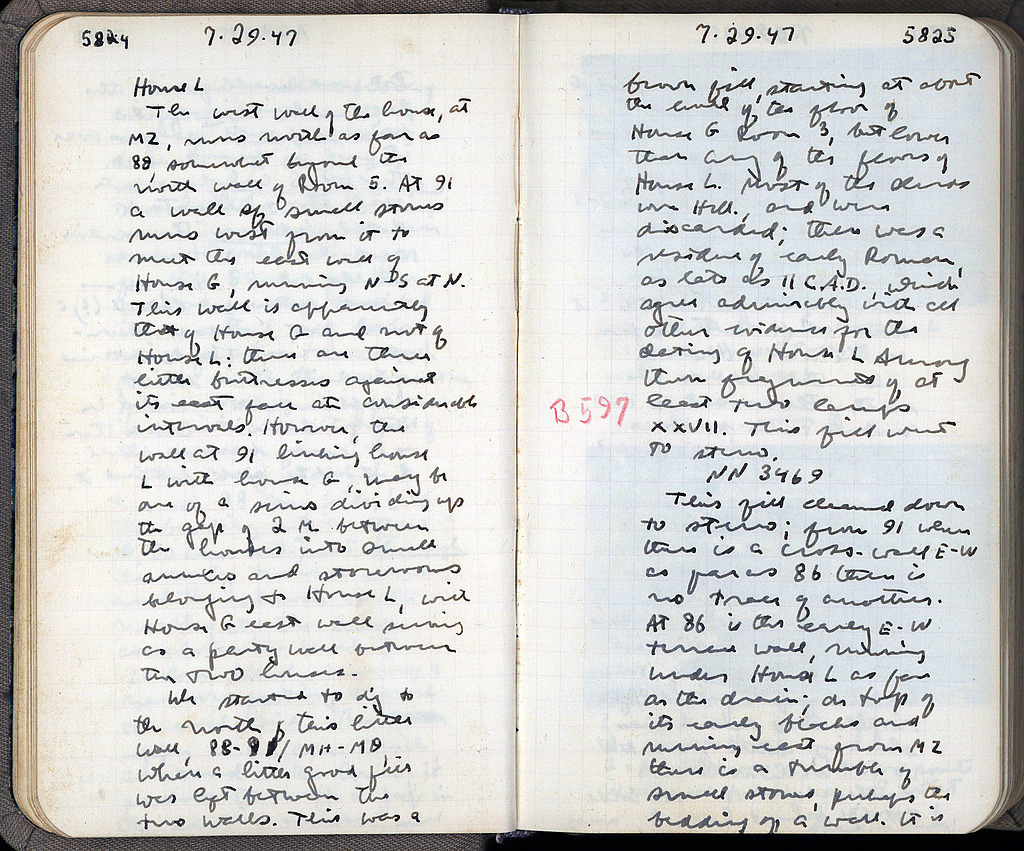 5824 7.29.47
House L
The west wall of the house, at
MZ, runs north as far as
88, somewhat beyond the
north wall of Room 5. At 91
a wall of small stones
runs west from it to
meet the east wall of
House G, running N-S at N.
This wall is apparently
that of House G and not of
House L. there are three
little buttresses against
its east face at considerable
intervals. However, the
wall at 91 linking house
L with house G, may be
one of a series dividing up
the gap of 2 M. between
the houses into small
annexes and storerooms
belonging to House L, with
House G east wall serving
as a party wall between
the two houses.
We started to dig to
the north of this little
wall, 88-91/ MH-MΘ,
where a little good fill
was left between the
two walls. This was a
7.29.47 5825
brown fill, starting at about
the level of the floor of
House G Room 3, but lower
than any of the floors of
House L. Most of the sherds
were Hell., and were
discarded; there was a
residue of early Roman,
as late as II C.A.D., which
agrees admirably with all
other evidence for the
dating of House L Among
them fragments of at
least two lamps
XXVII. This fill went
to stereo.
B 597
NN 3469
This fill cleaned down
to stereo; from 91 where
there is a cross-wall E-W
as far as 86 there is
no trace of another.
At 86 is the early E-W
terrace wall, running
under House L as far
as the drain; on top of
its early blocks and
running east from MZ
there is a tumble of
small stones, perhaps the
bedding of a wall. It is